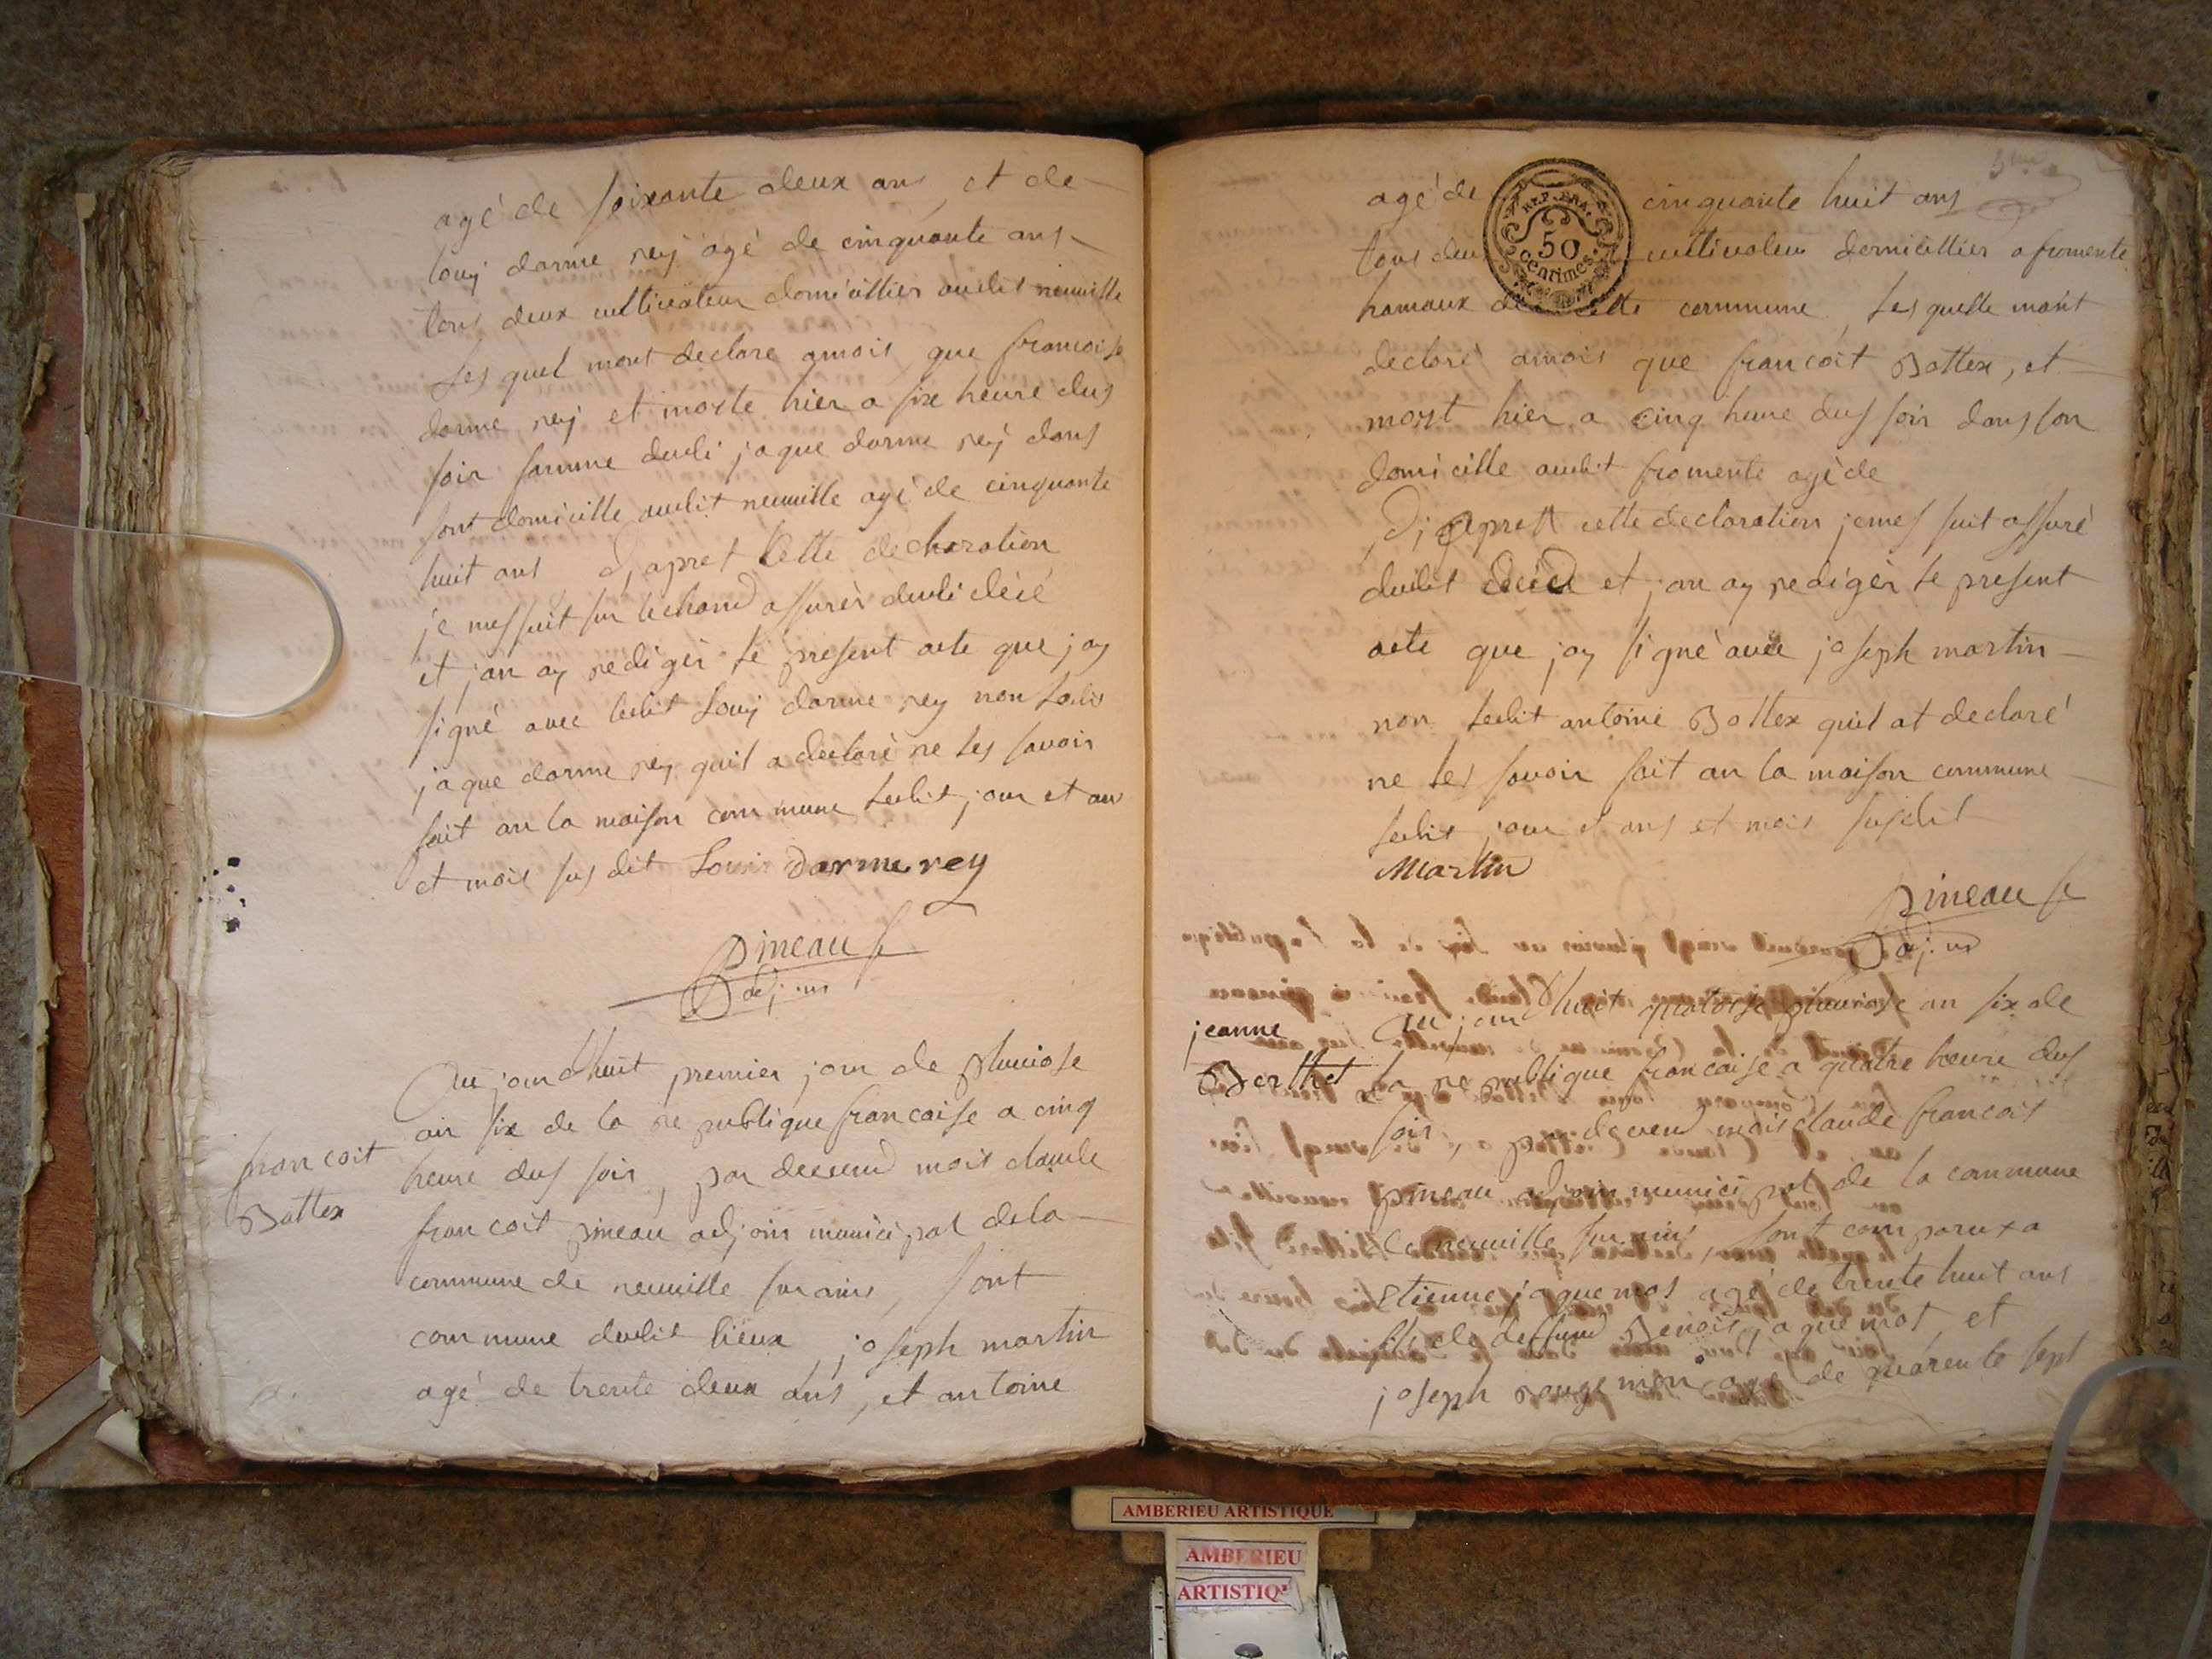 agé de soixante deux ans, et de
louy darme rey agé de cinquante ans
tous deux cultivateur domicillier audit neuville
Les quel mont declare amois que francoise
darme rey et morte hier a six heure dus
soir famme dudi jaque darme rey dans
sont domicille audit neuville agé de cinquante
huit ans d,apret Cette declaration
je mes suit sur lechand assurér dudi décé
et j'an ay rediger le present acte que jay
signé avec ledit Louy darme rey non ledit
jaque darme rey quil a declaré ne les savoir
fait an la maison commune ledit jour et an
et mois sus dit Louis Darmerey
Pineau
adj
Au jourdhuit premier jour de pluviose
francoit
Battex
an six de la republique francaise a cinq
heure dus soir, par devend mois claude
francoit pineau adjoin municipal dela
commune de neuville sur ains, sont
commune dudit lieux, joseph martin
agé de trente deux ans, et antoine
3me
agé de cinquante huit ans
tous deux cultivateur domicillier a fromente
hamaux de cette commune Les quelle mont
declaré amois que francoit Battex, et
mort hier a cinq heure dus soir dans son
domicille audit fromente agé de
D,apret cette declaration jemes suit assuré
dudit décé et j'an ay rediger le present
acte que jay signé avec joseph martin
non ledit antoine Battex quil at declaré
ne les savoir fait an la maison commune
ledit jour et ans et mois susdit
Martin
Pineau
adj
jeanne
Berthet
Au jourdhuit quatorse pluviose an six de
la republique francaise a quatre heure dus
soir, par devend mois claude francoit
pineau adjoin municipal de la commune
de neuville sur ains, sont comparuxa
Etienne jaquemos agé de trente huit ans
fils de deffund Benoit jaquemot et
joseph rougemon agé de quarente sept
REP. FRA.
50
centimes.
AMBERIEU ARTISTIQUE
AMBERIEU
ARTISTIQ